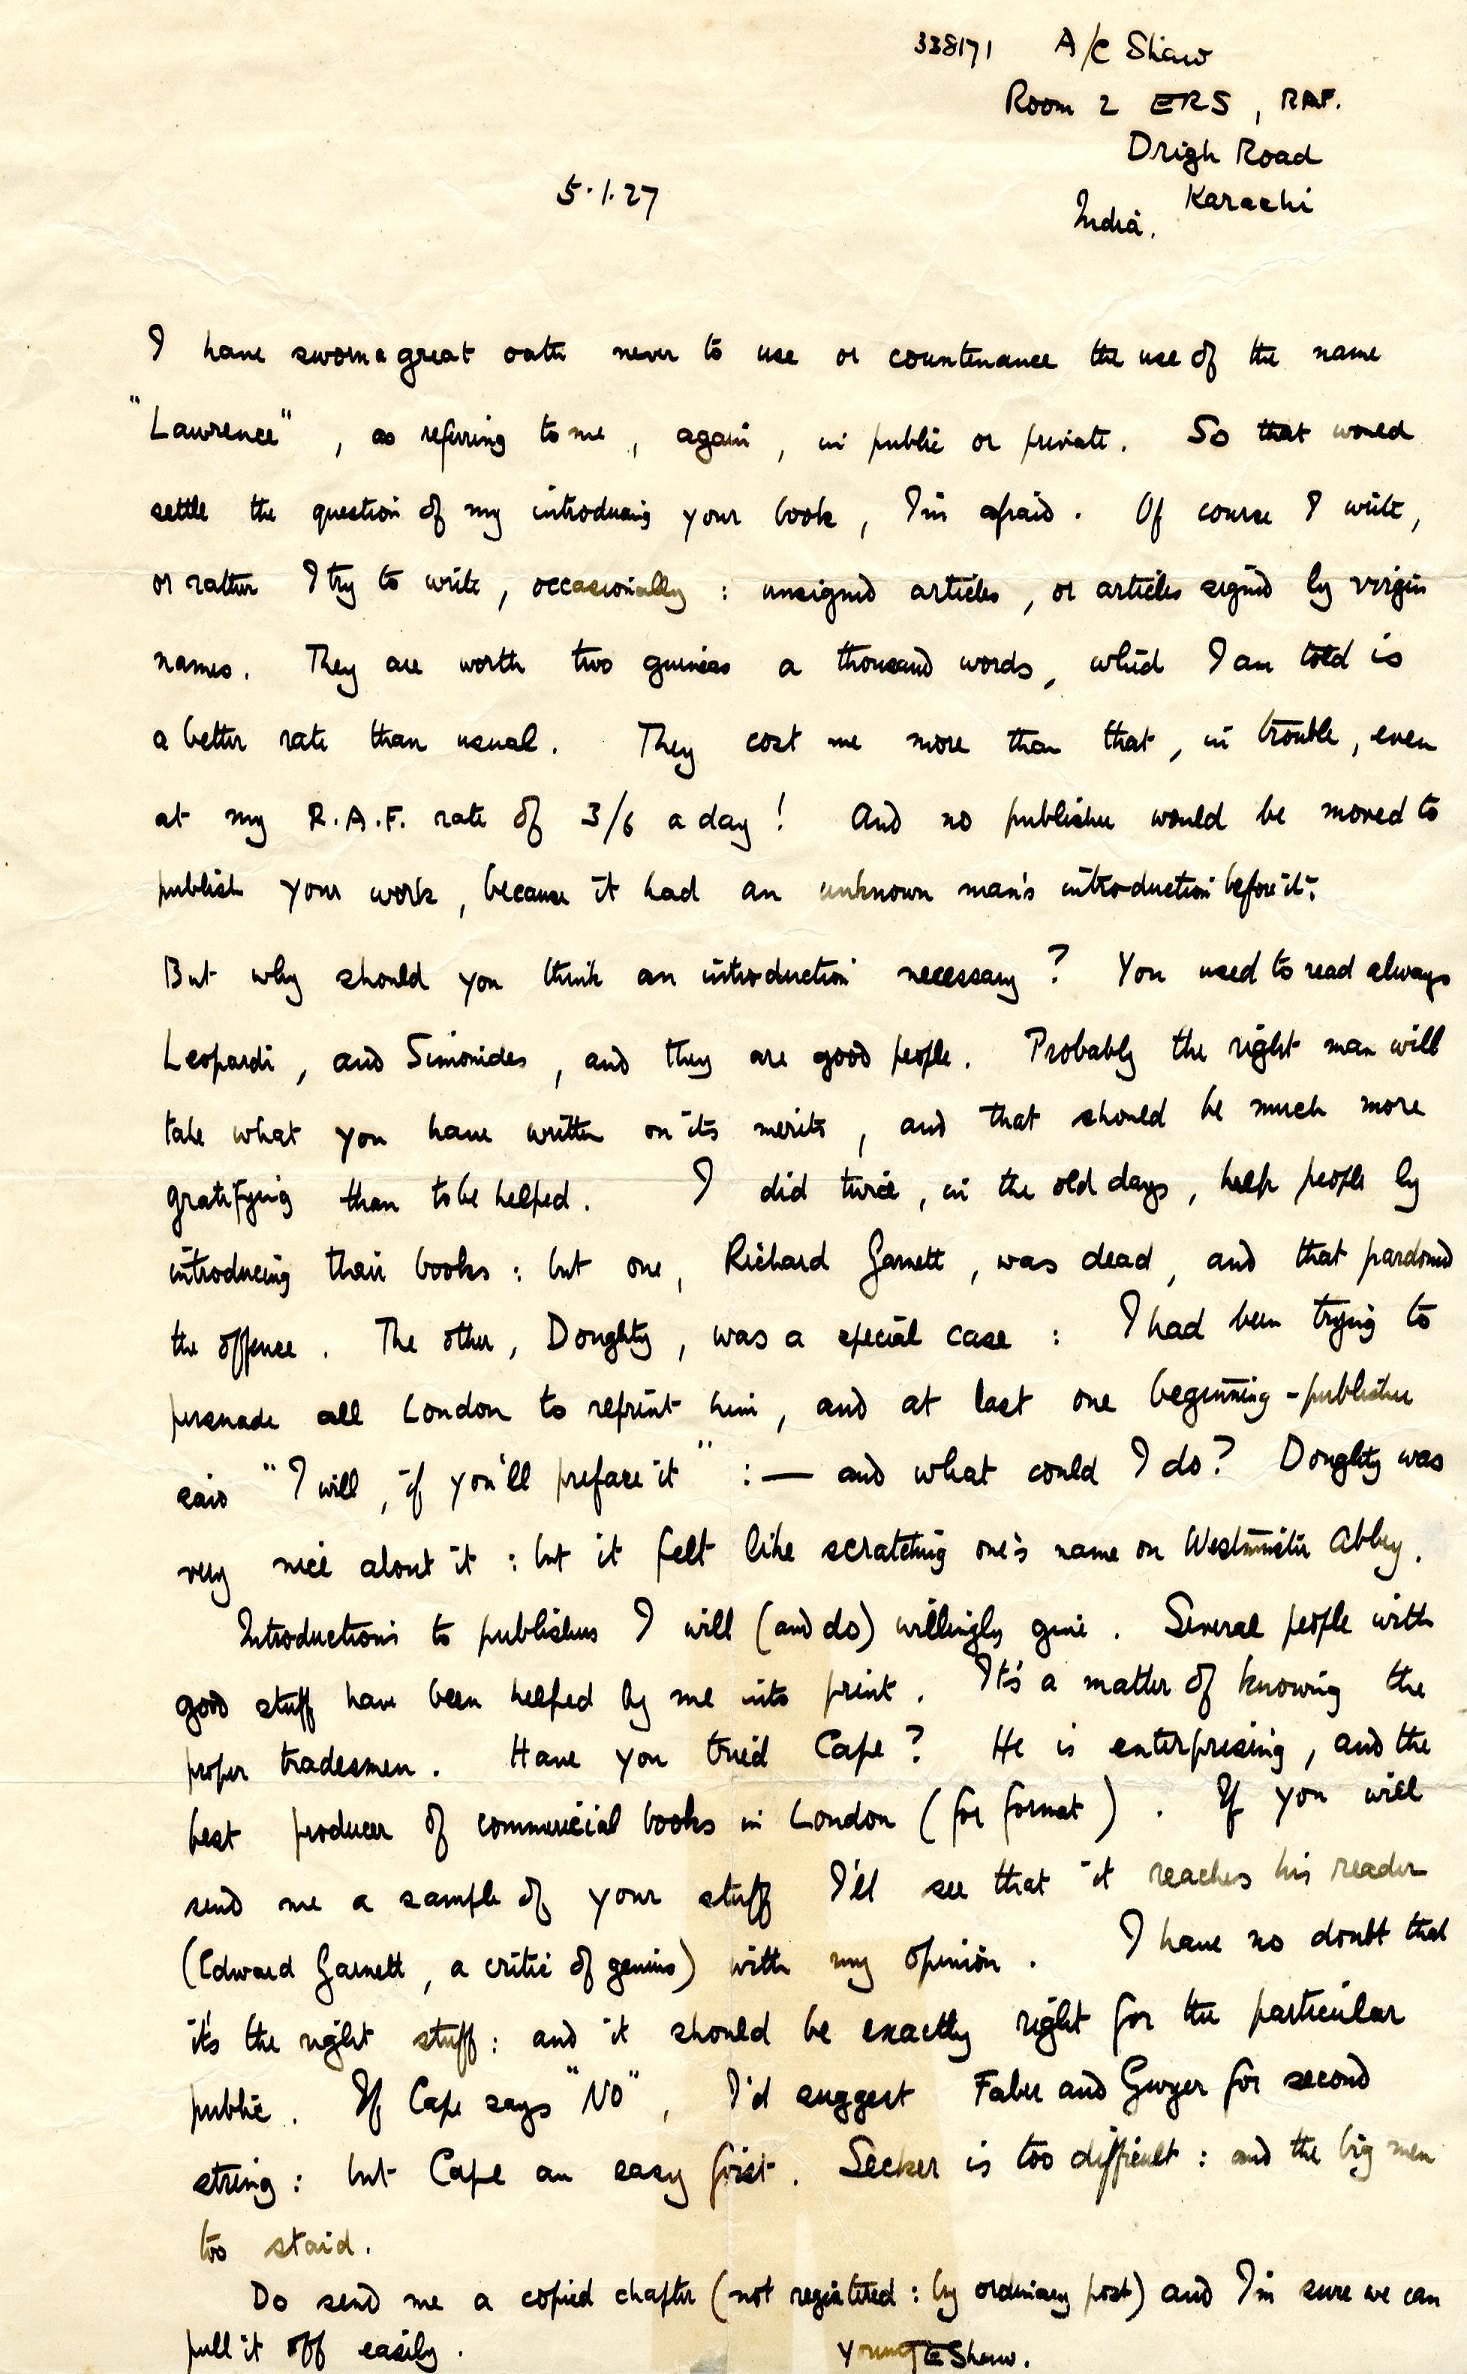 338171 A/C Shaw
Room 2 ERS, RAF.
Drigh Road
Karachi
India.
5.1.27
I have sworn a great oath never to use or countenance the use of the name
"Lawrence", as referring to me, again, in public or private. So that would
settle the question of my introducing your book, I'm afraid. Of course I write,
or rather I try to write, occasionally: unsigned articles, or articles signed by virgin
names. They are worth two guineas a thousand words, which I am told is
a better rate than usual. They cost me more than that, in trouble, even
at my R.A.F. rate of 3/6 a day! And no publisher would be moved to
publish your work, because it had an unknown man's introduction before it.
But why should you think an introduction necessary? You used to read always
Leopardi, and Simonides, and they are good people. Probably the right man will
take what you have written on its merits, and that should be much more
gratifying than to be helped. I did twice, in the old days, help people by
introducing their books: but one, Richard Garnett, was dead, and that pardoned
the offence. The other, Doughty, was a special case: I had been trying to
persuade all London to reprint him, and at last one beginning-publisher
said "I will, if you'll preface it":— and what could I do? Doughty was
very nice about it: but it felt like scratching one's name on Westminster Abbey.
Introductions to publishers I will (and do) willingly give. Several people with
good stuff have been helped by me into print. It's a matter of knowing the
proper tradesmen. Have you tried Cape? He is enterprising, and the
best producer of commericial books in London (for format). If you will
send me a sample of your stuff I'll see that it reaches his reader
(Edward Garnett, a critic of genius) with my opinion. I have no doubt that
it's the right stuff: and it should be exactly right for the particular
public. If Cape says "NO", I'd suggest Faber and Gwyer for second
string: but Cape an easy first. Secker is too difficult: and the big men
too staid.
Do send me a copied chapter (not registered: by ordinary post) and I'm sure we can
pull it off easily. Yours TE Shaw.